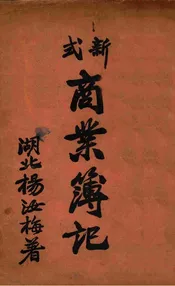 新式
商業簿記
湖北楊汝梅著